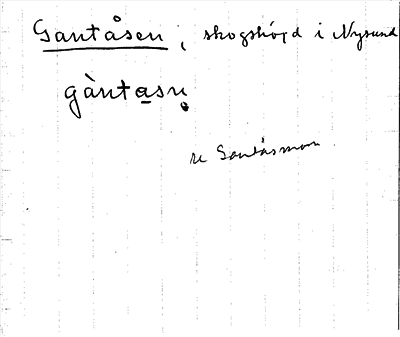 Gantåsen, skogshöjd i Nysund
gàntasn̥
se Gantåsmon